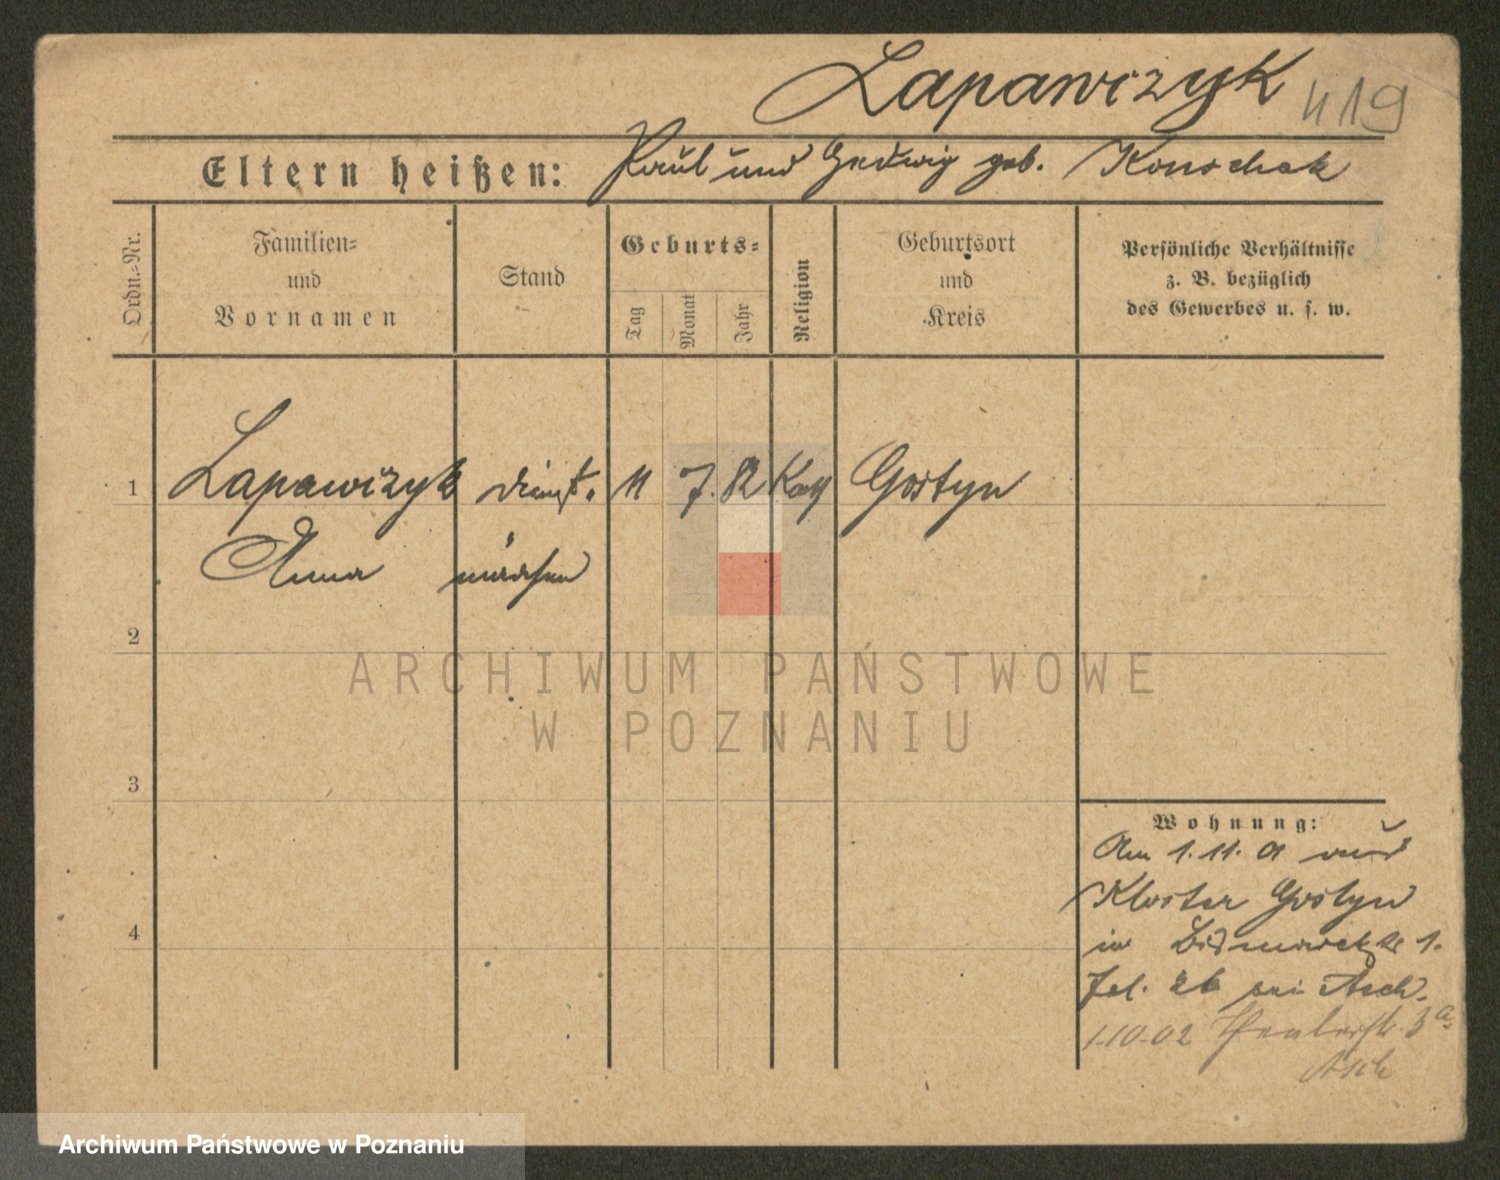 Lapawczyk 419
Eltern heißen: Paul und Hedwig geb. Konschak
Ordn.=Nr.
Familien=
und
Vornamen
Stand
Geburts=
Tag
Monat
Jahr
Religion
Geburtsort
und
Kreis
Persönliche Verhältnisse
z. B. bezüglich
des Gewerbes u. s. w.
1 Lapawczyk Dienst. 11 7. 82 Kath Gostyn
Anna mädchen
2
ARCHIWUM PAŃSTWOWE
W POZNANIU
3
Wohnung:
Am 1. 11. 01 aus
Kloster Gostyn
4
in Bismarckstr 1.
bei Asch.
1-10-02 Theaterstr. 3a
Asch
Archiwum Państwowe w Poznaniu